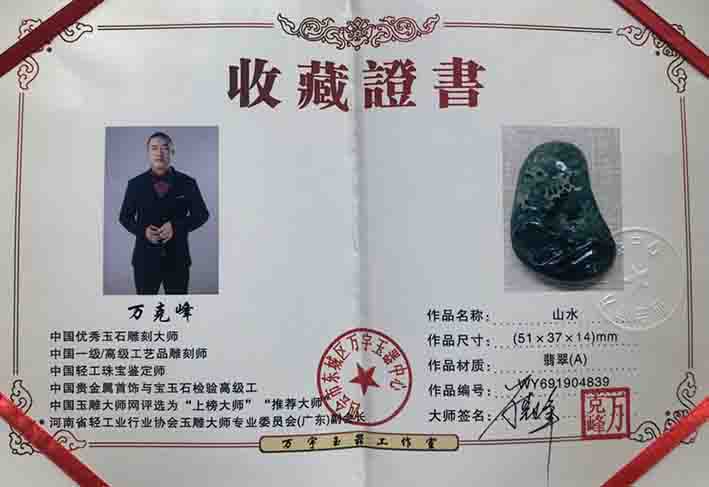 收藏證書
万克峰
中国优秀玉石雕刻大师
中国一级/高级工艺品雕刻师
中国轻工珠宝鉴定师
中国贵金属首饰与宝玉石检验高级工
中国玉雕大师网评选为“上榜大师”“推荐大师”
河南省轻工业行业协会玉雕大师专业委员会(广东)副会长
作品名称: 山水
作品尺寸: (51×37×14)mm
作品材质: 翡翠(A)
作品编号: WY691904839
大师签名:
万克峰
市东城区万字玉器中心
万字玉器工作室